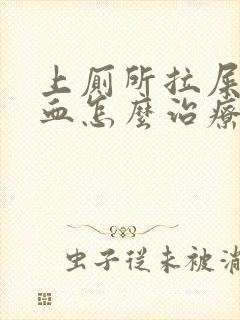 上厕所拉屎
血怎麼治療
虫子從未被消